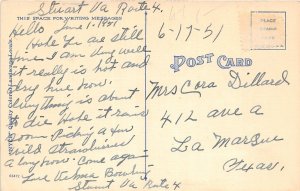 Stuart Va Route 4.
THIS SPACE FOR WRITING MESSAGES
Hello June 17. 1951
Hope Ye are still
fine. I am Very well
it really is hot and
dry here now.
Every thing is about
to die. Hope it rains
soon. Picking a few
Wild Strawberries
a long now. Come again
Love Velma Bowling
Stuart Va Route 4
6-17-51
PLACE
STAMP
HERE
POST CARD
Mrs Cora Dillard
412 ave a
La Marque
Texas,